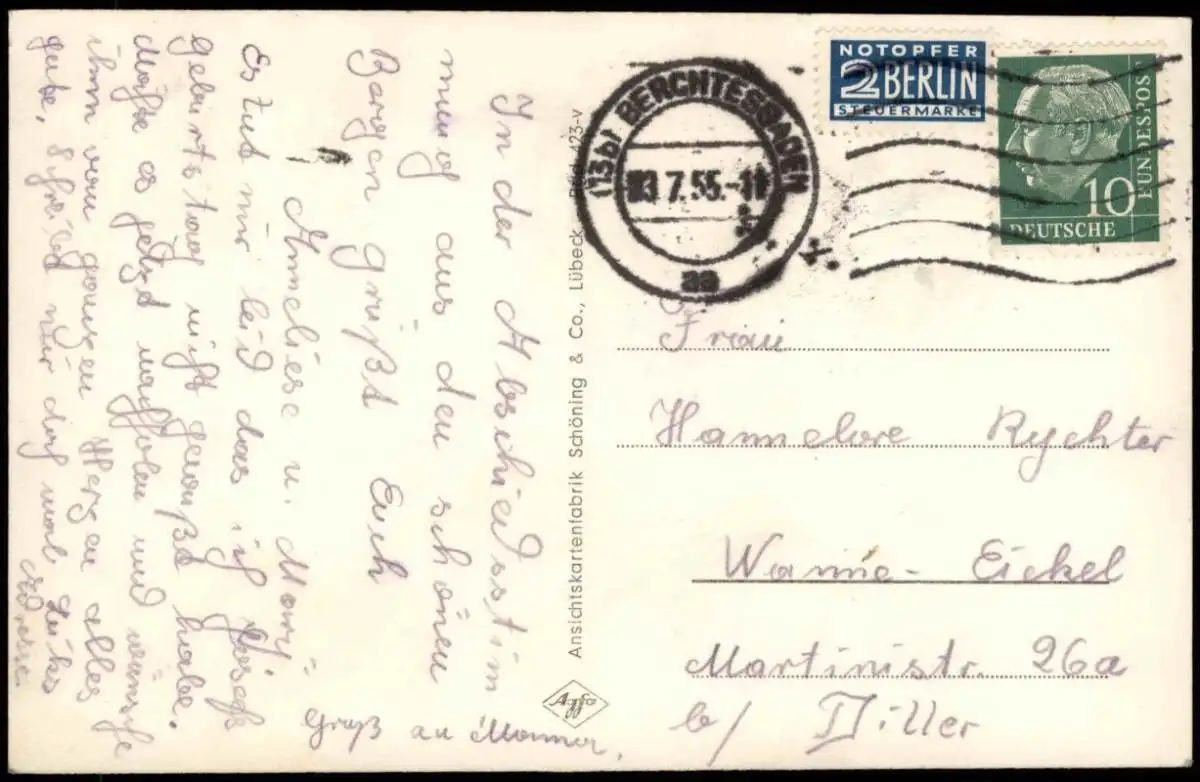 In der Abschiedsstim
mung aus den schönen
Bergen grüßt Euch
Anneliese u. Mary.
Es tut mir leid das ich
Geburtstag nicht gewußt habe.
Möchte es jetzt nachholen und wünsche
ihm vom ganzen Herzen alles
gute. Schreibt mir doch mal
Adresse.
Gruß an Mamma.
Ansichtskartenfabrik Schöning & Co., Lübeck
Agfa
(13b) BERCHTESGADEN
7.55.-
aa
NOTOPFER
2 BERLIN
STEUERMARKE
10
DEUTSCHE
BUNDESPOST
Frau
Hannelore Rychter
Wanne-Eickel
Martinistr. 26a
b/ Diller